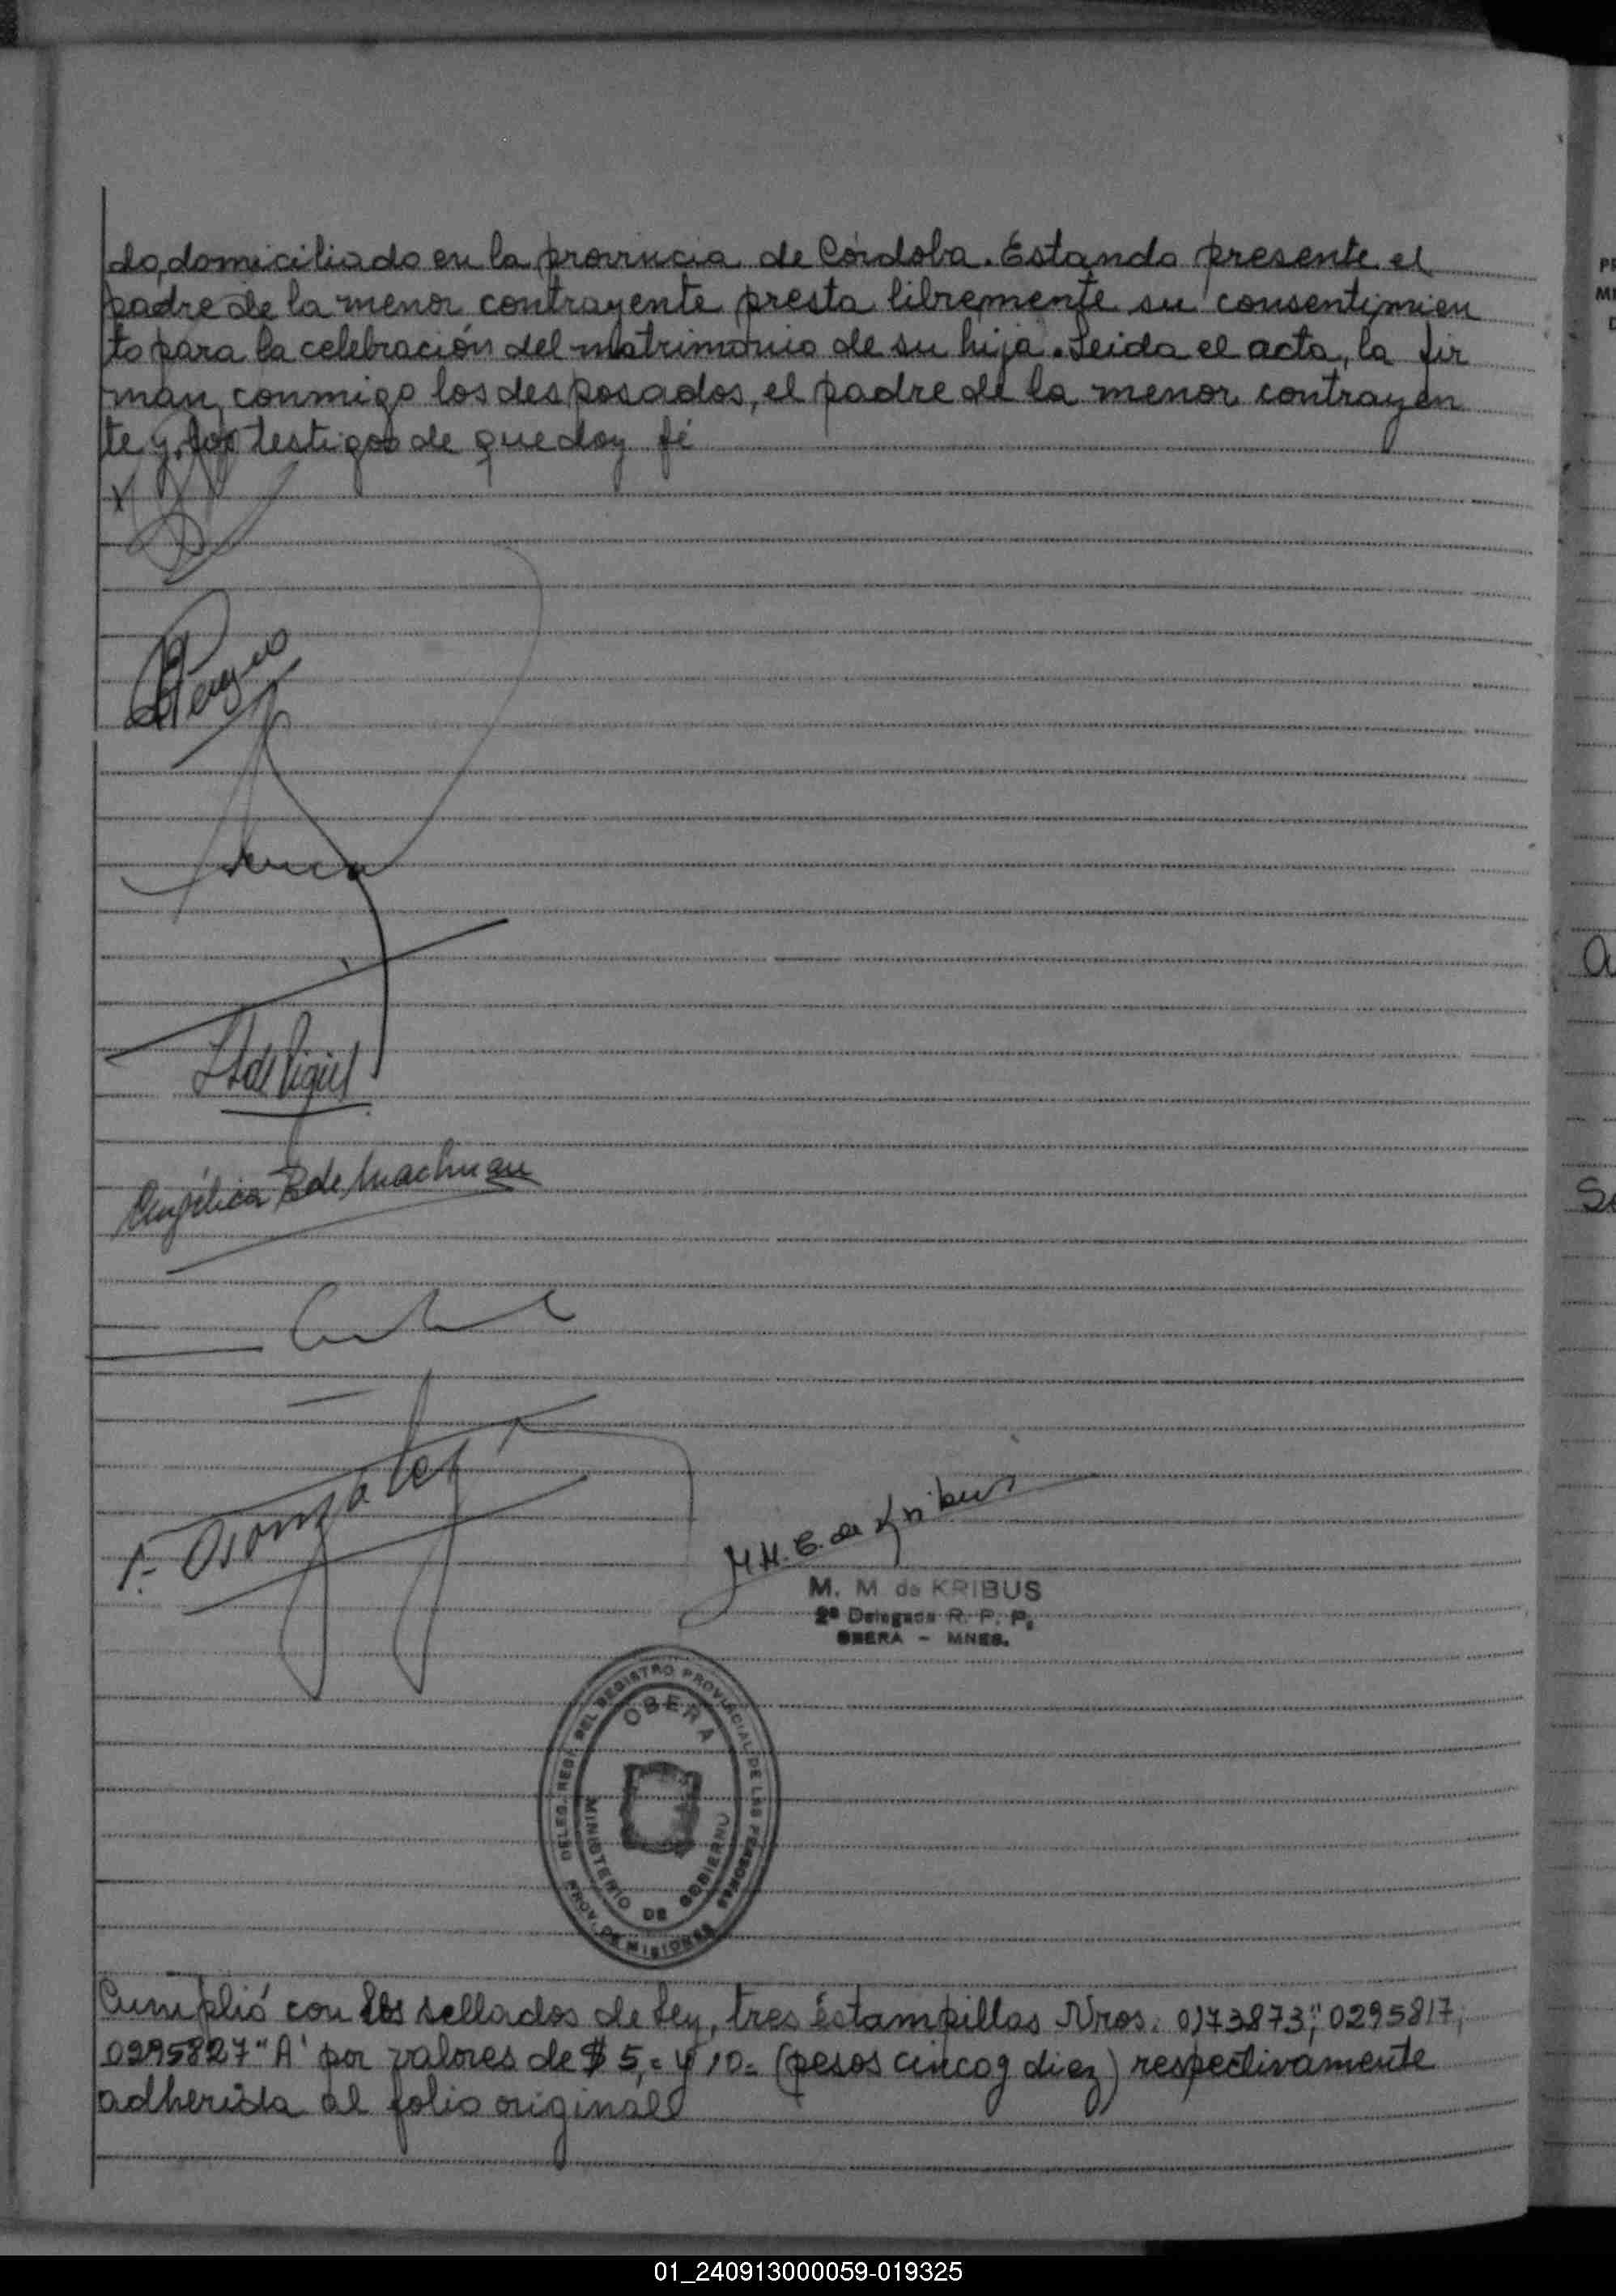 do, domiciliado en la provincia de Córdoba. Estando presente el
padre de la menor contrayente presta libremente su consentimien
to para la celebración del matrimonio de su hija. Leida el acta, la fir
man, conmigo los desposados, el padre de la menor contrayen
te y los testigos de que doy fé
x
Angélica B de Machuan
F. Gonzalez
M. M. G. de Kribus
M. M de KRIBUS
2ª Delegada R. P. P.
OBERA - MNES.
DELEG. REG. DEL REGISTRO PROVINCIAL DE LAS PERSONAS
OBERA
MINISTERIO DE GOBIERNO
PROV. DE MISIONES
Cumplió con los sellados de Ley, tres éstampillas Nros. 0173873," 0295817,
0295827 "A" por valores de $ 5,= y 10= (pesos cinco y diez) respectivamente
adherida al folio original
01_240913000059-019325